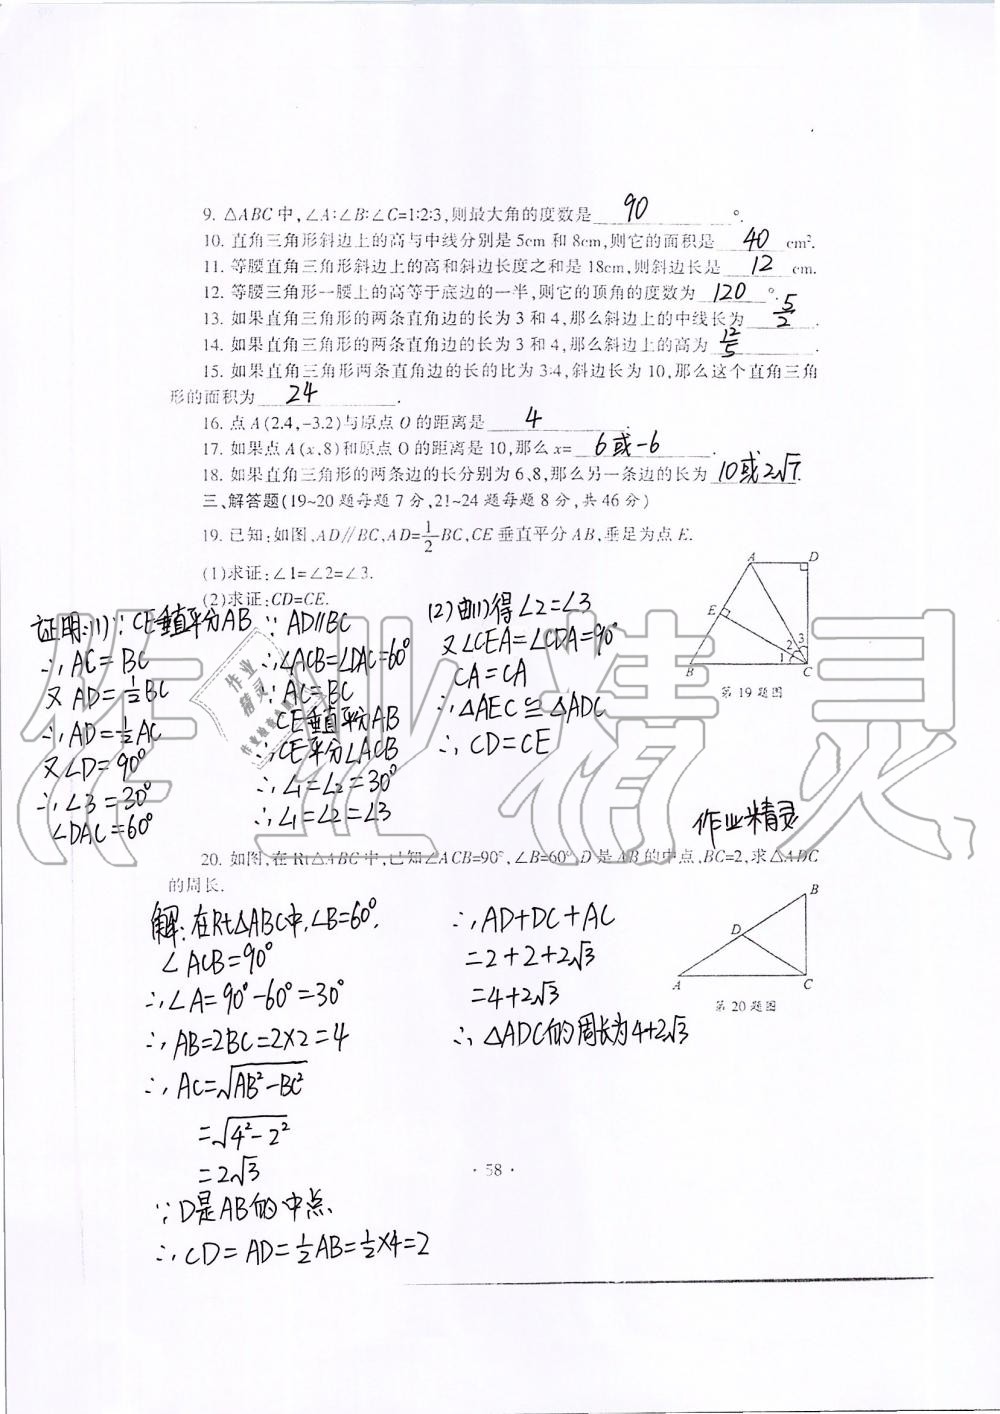 9. △ABC中,∠A∶∠B∶∠C=1∶2∶3,则最大角的度数是 90 °.
10. 直角三角形斜边上的高与中线分别是5cm和8cm,则它的面积是 40 cm².
11. 等腰直角三角形斜边上的高和斜边长度之和是18cm,则斜边长是 12 cm.
12. 等腰三角形一腰上的高等于底边的一半,则它的顶角的度数为 120 °.
13. 如果直角三角形的两条直角边的长为3和4,那么斜边上的中线长为 5/2 .
14. 如果直角三角形的两条直角边的长为3和4,那么斜边上的高为 12/5 .
15. 如果直角三角形两条直角边的长的比为3∶4,斜边长为10,那么这个直角三角
形的面积为 24 .
16. 点A(2.4,-3.2)与原点O的距离是 4 .
17. 如果点A(x,8)和原点O的距离是10,那么x= 6或-6 .
18. 如果直角三角形的两条边的长分别为6、8,那么另一条边的长为 10或2√7.
三、解答题(19~20题每题7分,21~24题每题8分,共46分)
19. 已知:如图,AD∥BC,AD=1/2BC,CE垂直平分AB,垂足为点E.
(1)求证:∠1=∠2=∠3.
(2)求证:CD=CE.
证明:(1)∵CE垂直平分AB
∴AC=BC
又AD=1/2BC
∴AD=1/2AC
又∠D=90°
∴∠3=30°
∠DAC=60°
∵AD∥BC
∴∠ACB=∠DAC=60°
∵AC=BC
CE垂直平分AB
∴CE平分∠ACB
∴∠1=∠2=30°
∴∠1=∠2=∠3
(2)由(1)得∠2=∠3
又∠CEA=∠CDA=90°
CA=CA
∴△AEC≌△ADC
∴CD=CE
A D
E
2 3
1
B C
第19题图
作业精灵
20. 如图,在Rt△ABC中,已知∠ACB=90°,∠B=60°,D是AB的中点,BC=2,求△ADC
的周长.
解:在Rt△ABC中,∠B=60°,
∠ACB=90°
∴∠A=90°-60°=30°
∴AB=2BC=2×2=4
∴AC=√AB²-BC²
=√4²-2²
=2√3
∵D是AB的中点
∴CD=AD=1/2AB=1/2×4=2
∴AD+DC+AC
=2+2+2√3
=4+2√3
∴△ADC的周长为4+2√3
B
D
A C
第20题图
·58·
作业精灵
作业
精灵